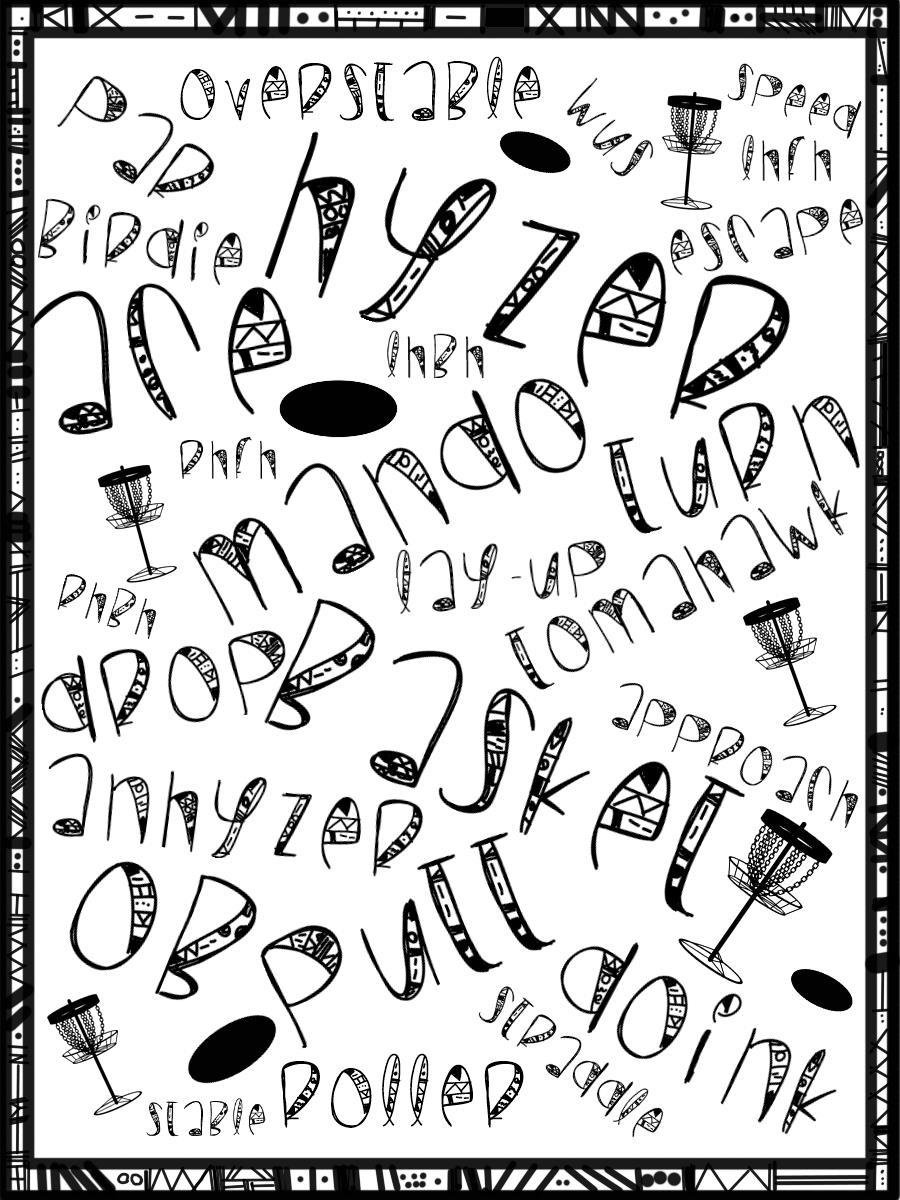 par
overstable
speed
lhfh
birdie
hyzer
escape
ace
lhbh
rhfh
mando
turn
rhbh
lay-up
tomahawk
drop
basket
approach
anhyzer
OB
putt
doink
straddle
stable
roller